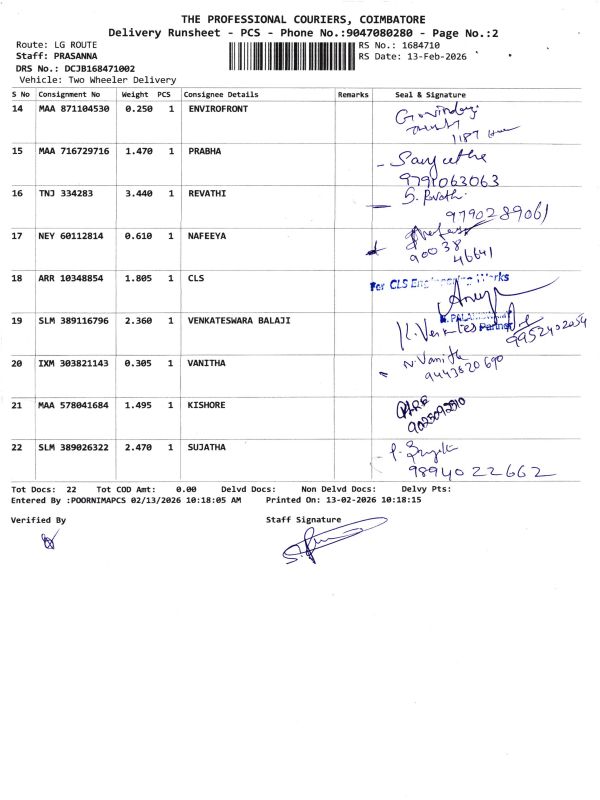 THE PROFESSIONAL COURIERS, COIMBATORE
Delivery Runsheet - PCS - Phone No.:9047080280 - Page No.:2
Route: LG ROUTE RS No.: 1684710
Staff: PRASANNA RS Date: 13-Feb-2026
DRS No.: DCJB168471002
Vehicle: Two Wheeler Delivery
S No Consignment No Weight PCS Consignee Details Remarks Seal & Signature
14 MAA 871104530 0.250 1 ENVIROFRONT
15 MAA 716729716 1.470 1 PRABHA
9791063063
16 TNJ 334283 3.440 1 REVATHI S. Revathi
9790289061
17 NEY 60112814 0.610 1 NAFEEYA
90038
46641
18 ARR 10348854 1.805 1 CLS For CLS Engineering Works
Partner
19 SLM 389116796 2.360 1 VENKATESWARA BALAJI
9952402054
20 IXM 303821143 0.305 1 VANITHA N. Vanitha
9443620690
21 MAA 578041684 1.495 1 KISHORE
22 SLM 389026322 2.470 1 SUJATHA
9894022662
Tot Docs: 22 Tot COD Amt: 0.00 Delvd Docs: Non Delvd Docs: Delvy Pts:
Entered By :POORNIMAPCS 02/13/2026 10:18:05 AM Printed On: 13-02-2026 10:18:15
Verified By Staff Signature